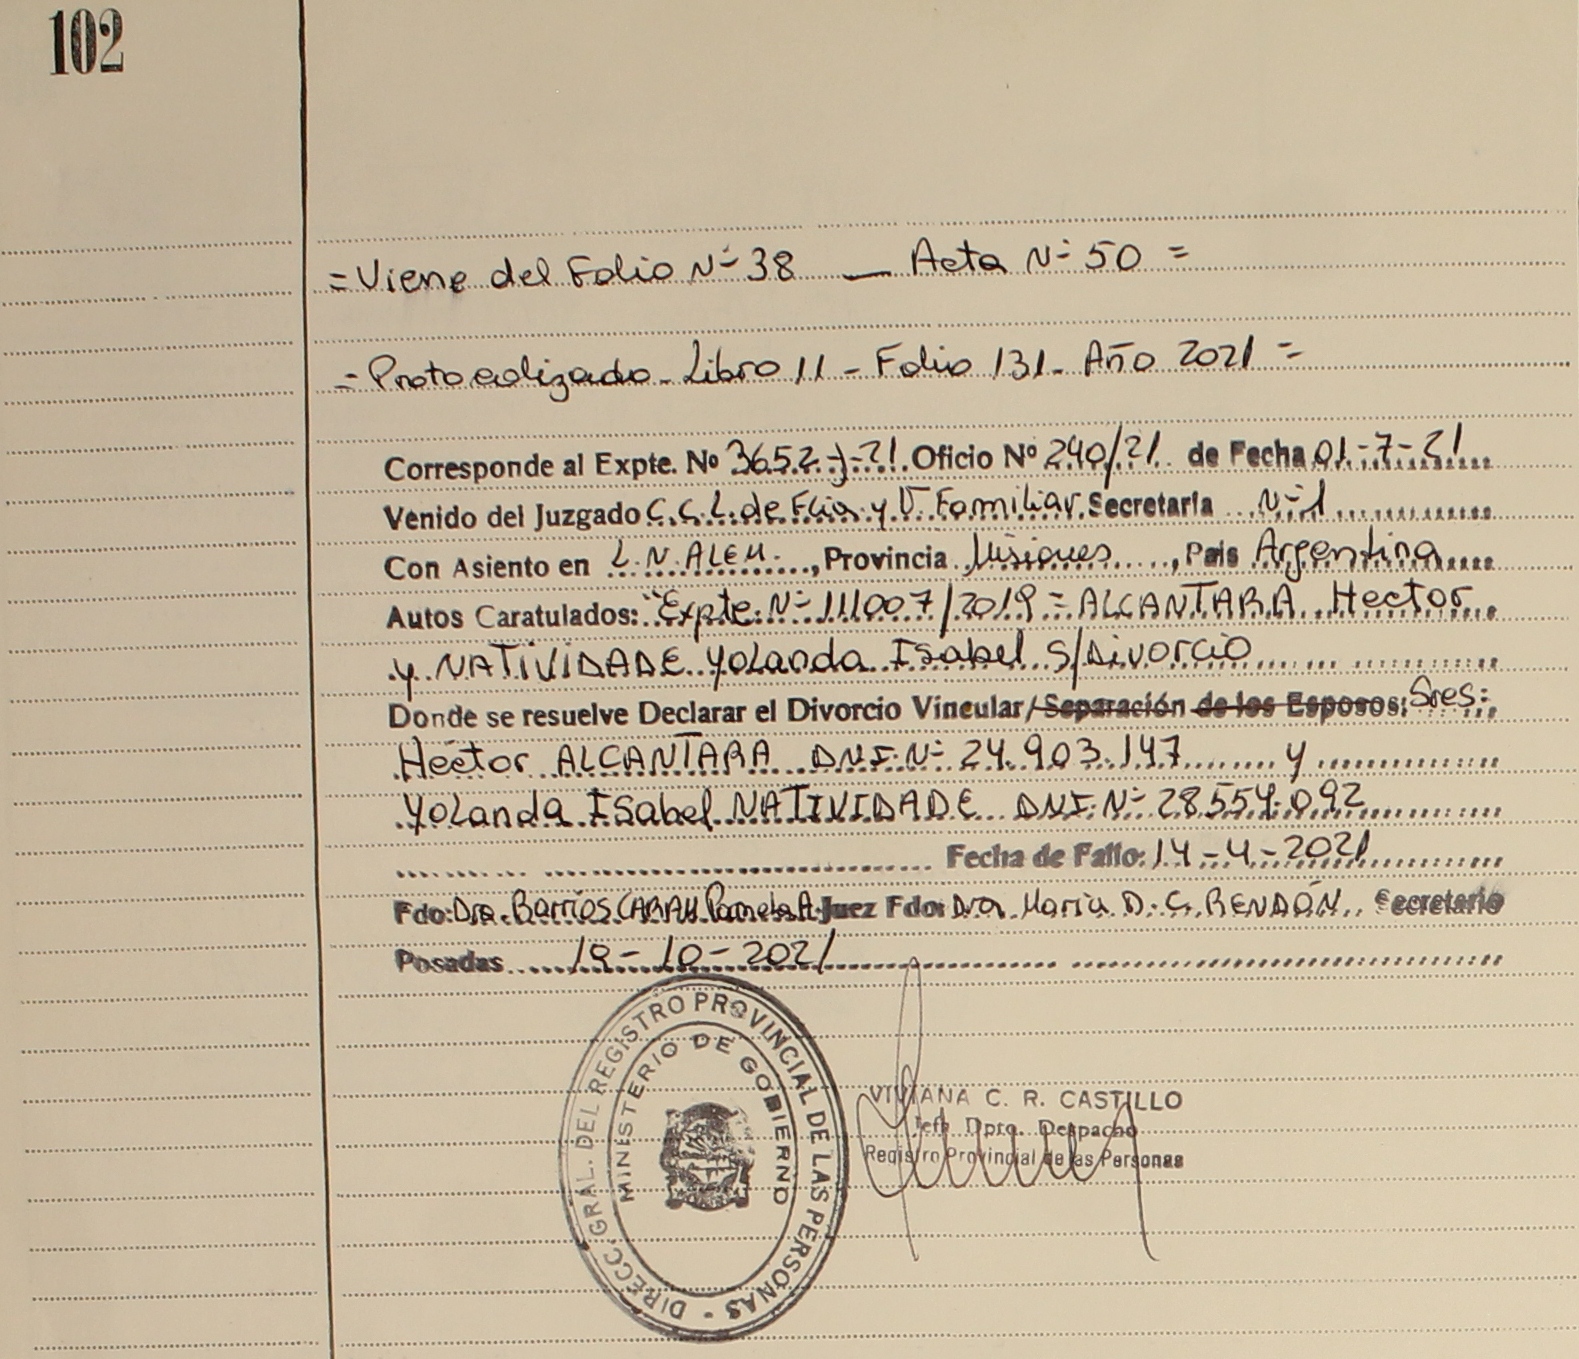 102
= Viene del Folio Nº 38 — Acta Nº 50 =
= Protocolizado - Libro 11 - Folio 131 - Año 2021 =
Corresponde al Expte. Nº 3652-J-21. Oficio Nº 240/21 de Fecha 01-7-21
Venido del Juzgado C.C.L. de Flia y V. Familiar Secretaría Nº 1
Con Asiento en L.N. ALEM, Provincia Misiones, País Argentina
Autos Caratulados: "Expte. Nº 111007/2019 = ALCANTARA Hector
y NATIVIDADE Yolanda Isabel S/Divorcio
Donde se resuelve Declarar el Divorcio Vincular/Separación de los Esposos: Sres:
Hector ALCANTARA DNI. Nº 24.903.147 y
Yolanda Isabel NATIVIDADE DNI. Nº 28.554.092
Fecha de Fallo: 14-4-2021
Fdo: Dra. Barrios Pamela A. Juez Fdo: Dra. Maria D. C. RENDÓN. Secretario
Posadas 19-10-2021
DIRECC. GRAL. DEL REGISTRO PROVINCIAL DE LAS PERSONAS -
MINISTERIO DE GOBIERNO
VIVIANA C. R. CASTILLO
Jefa Dpto. Despacho
Registro Provincial de las Personas